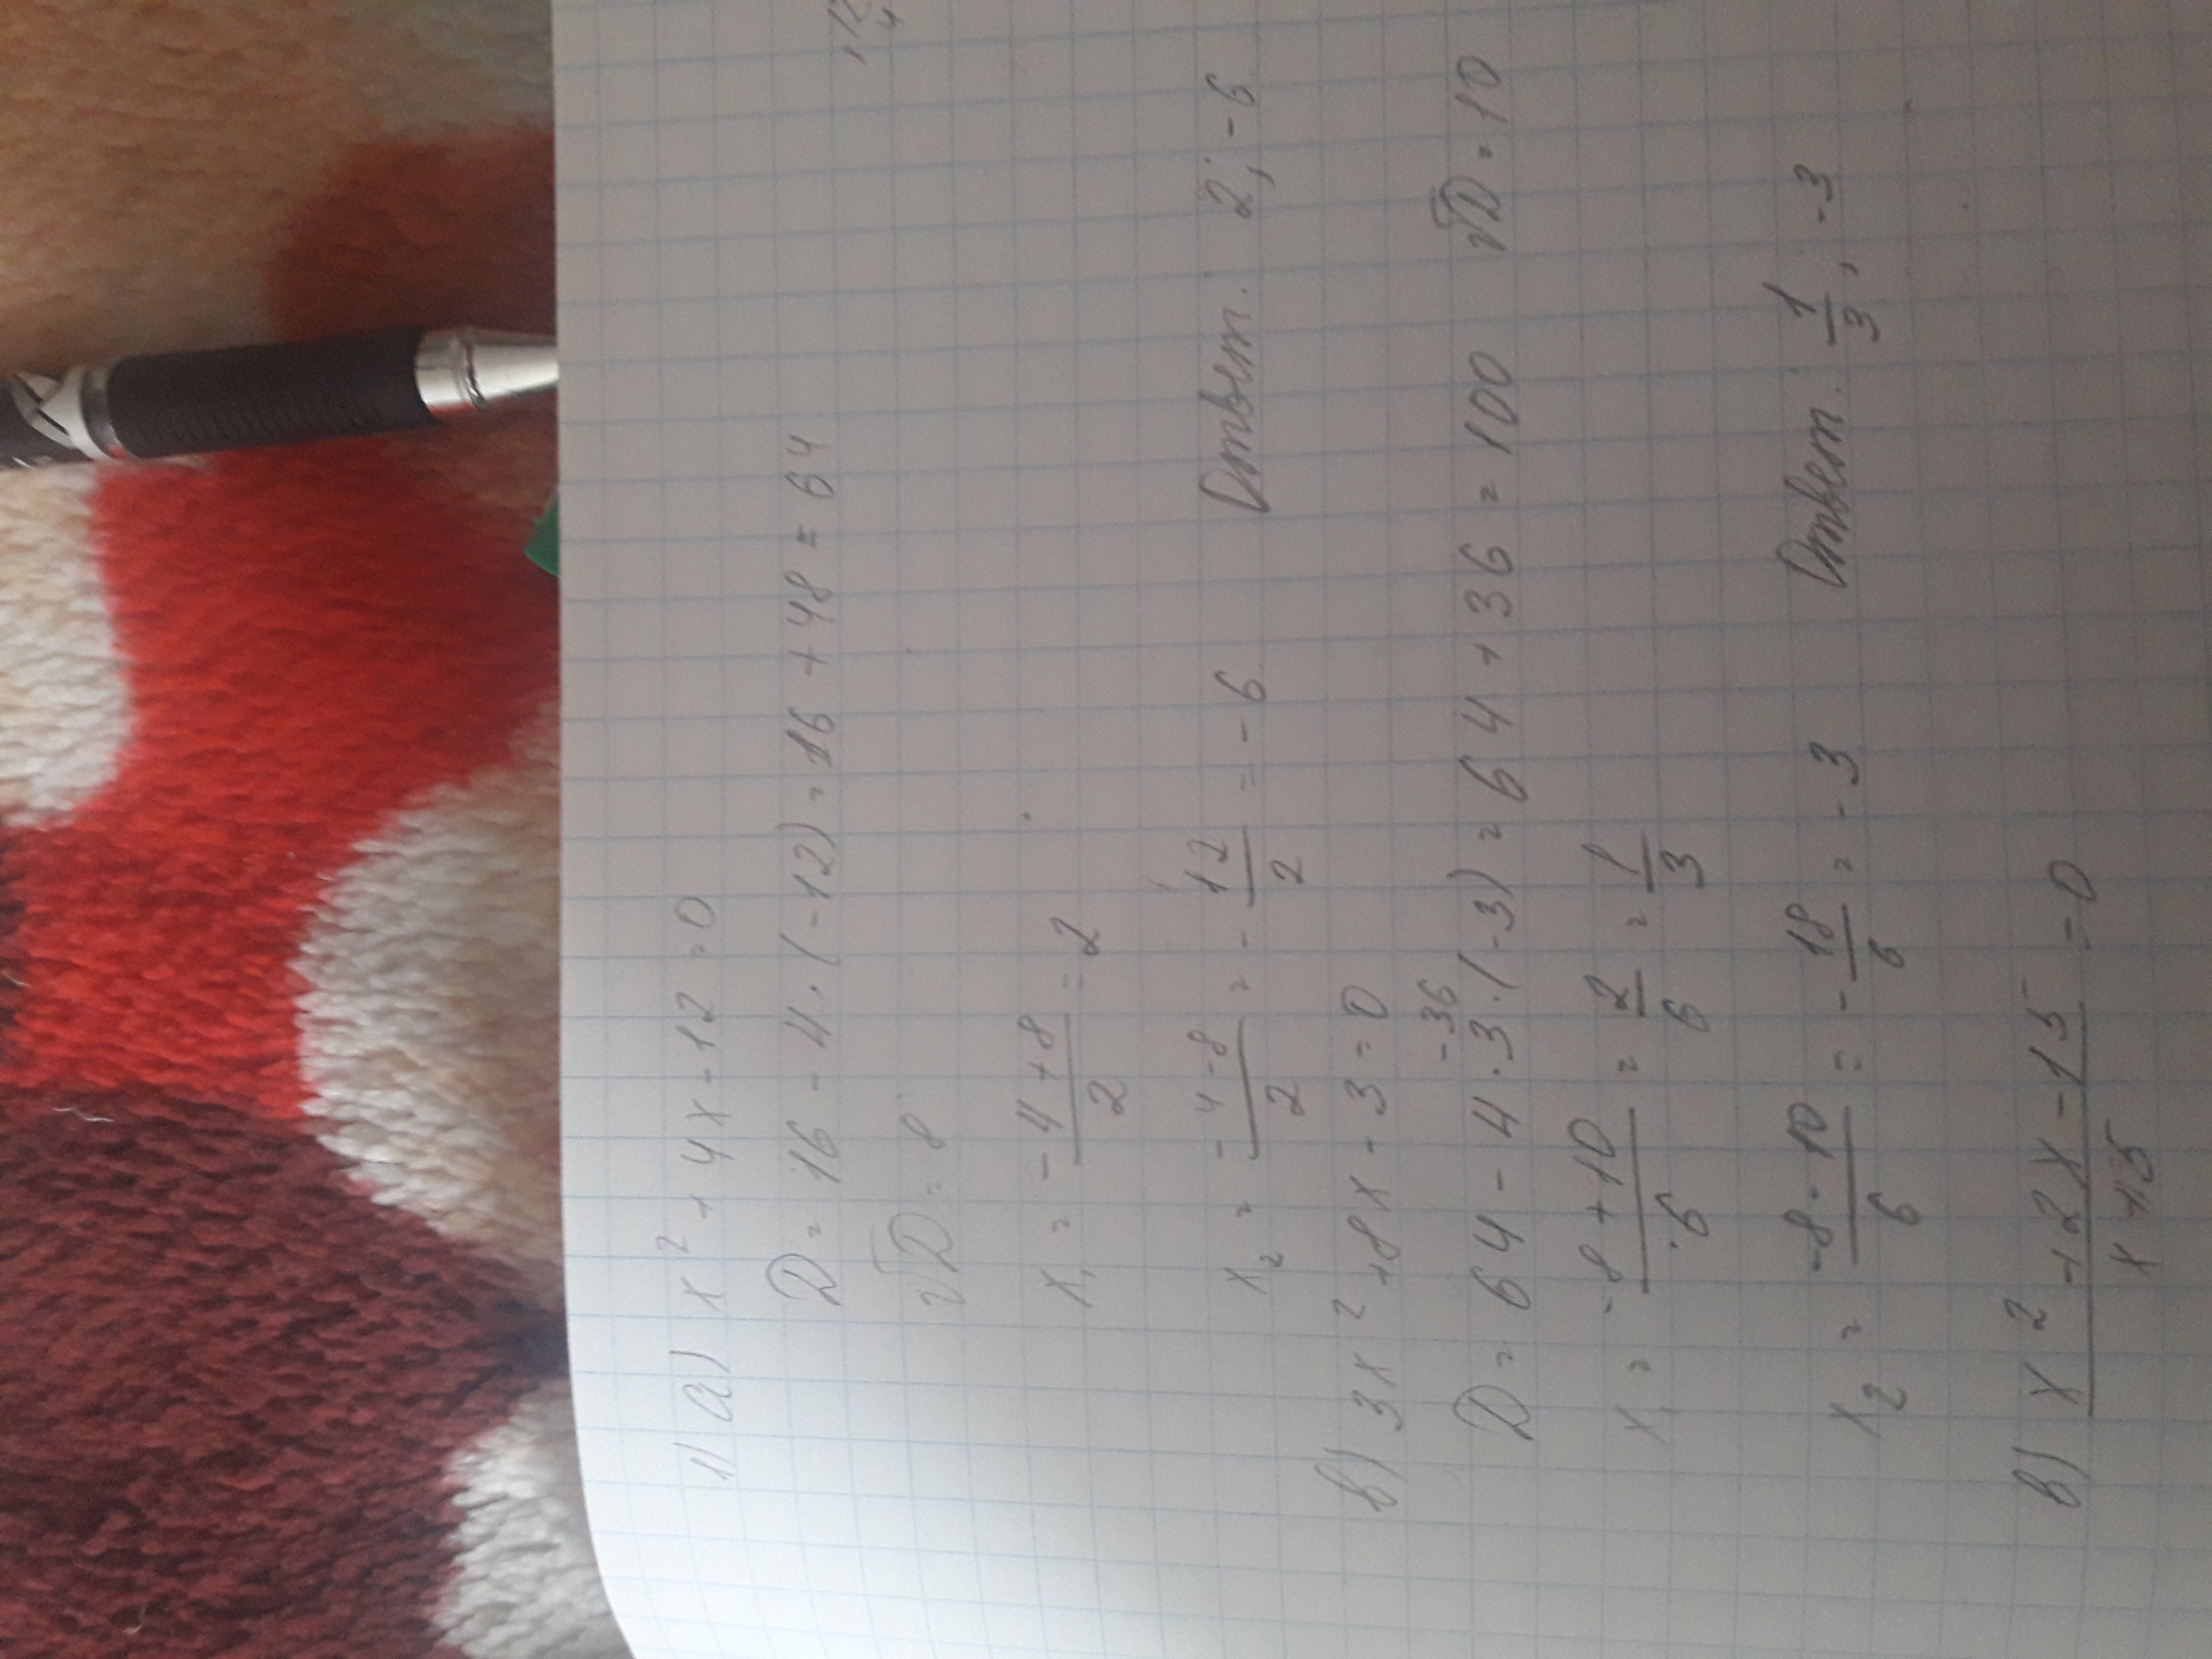 1) а) x² + 4x - 12 = 0
D = 16 - 4 · (-12) = 16 + 48 = 64
√D = 8
x₁ = (-4 + 8)/2 = 2
x₂ = (-4 - 8)/2 = - 12/2 = - 6 Ответ: 2; -6
б) 3x² + 8x - 3 = 0
-36
D = 64 - 4 · 3 · (-3) = 64 + 36 = 100 √D = 10
x₁ = (-8 + 10)/6 = 2/6 = 1/3
x₂ = (-8 - 10)/6 = - 18/6 = - 3 Ответ: 1/3; -3
в) (x² + 2x - 15)/(x + 5) = 0